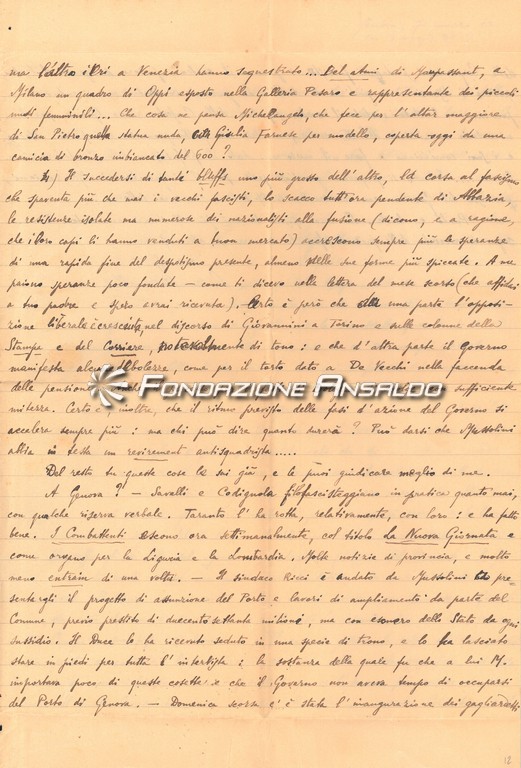 ma l'altro ieri a Venezia hanno sequestrato... Bel Ami di Maupassant, a
Milano un quadro di Oppi esposto nella Galleria Pesaro e rappresentante dei piccoli
nudi femminili... Che cosa ne pensa Michelangelo, che fece per l'altar maggiore
di San Pietro quella statua nuda, Giulia Farnese per modello, coperta oggi da una
camicia di bronzo imbiancato del 600?
Il succedersi di tanti bluffs uno più grosso dell'altro, la corsa al fascismo
che spaventa più che mai i vecchi fascisti, lo scacco tutt'ora pendente di Abbazia,
le resistenze isolate ma numerose dei nazionalisti alla fusione (dicono, e a ragione,
che i loro capi li hanno venduti a buon mercato) accrescono sempre più le speranze
di una rapida fine del despotismo presente, almeno nelle sue forme più spiccate. A me
paiono speranze poco fondate - come ti dicevo nella lettera del mese scorso (che affidai
a tuo padre e spero avrai ricevuta). Certo è però che da una parte l'opposi-
zione liberale è cresciuta, nel discorso di Giovannini a Torino e sulle colonne della
Stampa e del Corriere, notevolmente di tono: e che d'altra parte il Governo
manifesta alcune debolezze, come per il torto dato a De Vecchi nella faccenda
delle pensioni sufficiente
Certo è, inoltre, che il ritmo previsto delle fasi d'azione del Governo si
accelera sempre più: ma chi può dire quanto durerà? Può darsi che Mussolini
abbia in testa un revirement antisquadrista.....
Del resto tu queste cose le sai già, e le puoi giudicare meglio di me.
A Genova? - Savelli e Codignola filofascisteggiano in pratica quanto mai,
con qualche riserva verbale. Taranto l'ha rotta, relativamente, con loro: e ha fatto
bene. I Combattenti escono ora settimanalmente, col titolo La Nuova Giornata e
come organo per la Liguria e la Lombardia. Molte notizie di provincia, e molto
meno entrain di una volta. - Il sindaco Ricci è andato da Mussolini a pre-
sentargli il progetto di assunzione del Porto e lavori di ampliamento da parte del
Comune, previo prestito di duecentosettanta milioni, ma con esonero dello Stato da ogni
sussidio. Il Duce lo ha ricevuto seduto in una specie di trono, e lo ha lasciato
stare in piedi per tutta l'intervista: la sostanza della quale fu che a lui M.
importava poco di queste cosette e che il Governo non aveva tempo di occuparsi
del Porto di Genova. - Domenica scorsa c'è stata l'inaugurazione dei gagliardetti
FONDAZIONE ANSALDO
12